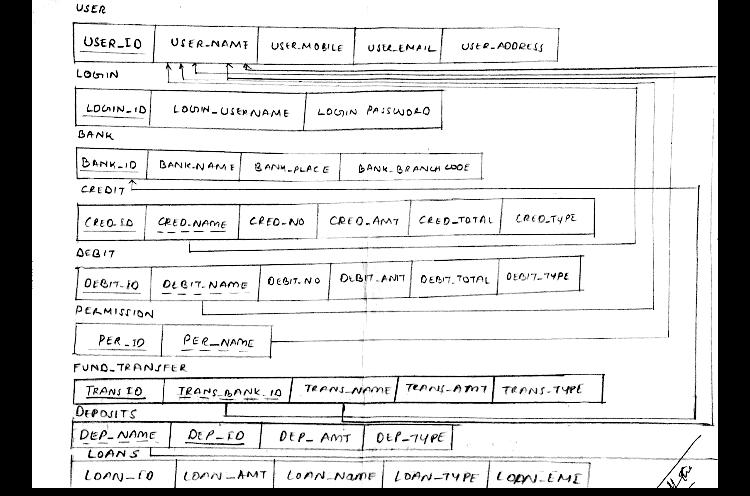 USER
USER_ID USER_NAME USER_MOBILE USER_EMAIL USER_ADDRESS
LOGIN
LOGIN_ID LOGIN_USERNAME LOGIN PASSWORD
BANK
BANK_ID BANK_NAME BANK_PLACE BANK_BRANCHCODE
CREDIT
CRED_ID CRED_NAME CRED_NO CRED_AMT CRED_TOTAL CRED_TYPE
DEBIT
DEBIT_ID DEBIT_NAME DEBIT_NO DEBIT_AMT DEBIT_TOTAL DEBIT_TYPE
PERMISSION
PER_ID PER_NAME
FUND_TRANSFER
TRANS ID TRANS_BANK_ID TRANS_NAME TRANS_AMT TRANS_TYPE
DEPOSITS
DEP_NAME DEP_ID DEP_AMT DEP_TYPE
LOANS
LOAN_ID LOAN_AMT LOAN_NAME LOAN_TYPE LOAN_EMI